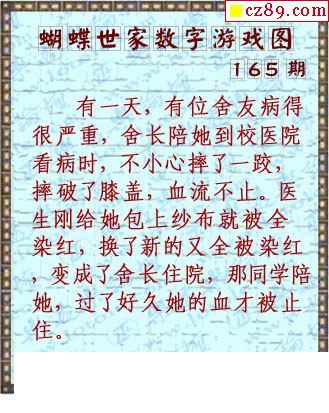 cz89.com
蝴蝶世家数字游戏图
165期
有一天，有位舍友病得
很严重，舍长陪她到校医院
看病时，不小心摔了一跤，
摔破了膝盖，血流不止。医
生刚给她包上纱布就被全
染红，换了新的又全被染红
，变成了舍长住院，那同学陪
她，过了好久她的血才被止
住。